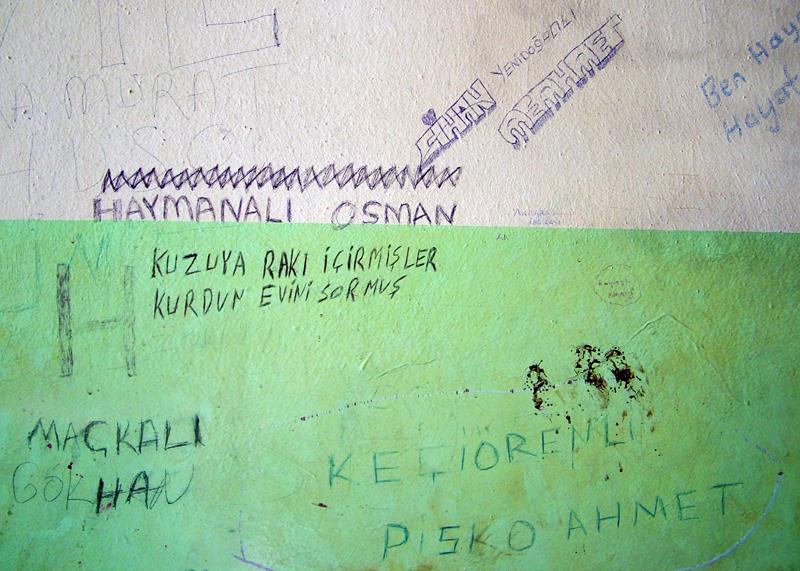 MURAT
CİHAN YENİDOĞANLI
MEMHMET
Ben Hay
Hayat
HAYMANALI OSMAN
H
KUZUYA RAKI İÇİRMİŞLER
KURDUN EVİNİ SORMUŞ
MAÇKALI
GÖKHAN
KEÇİÖRENLİ
PİSKO AHMET